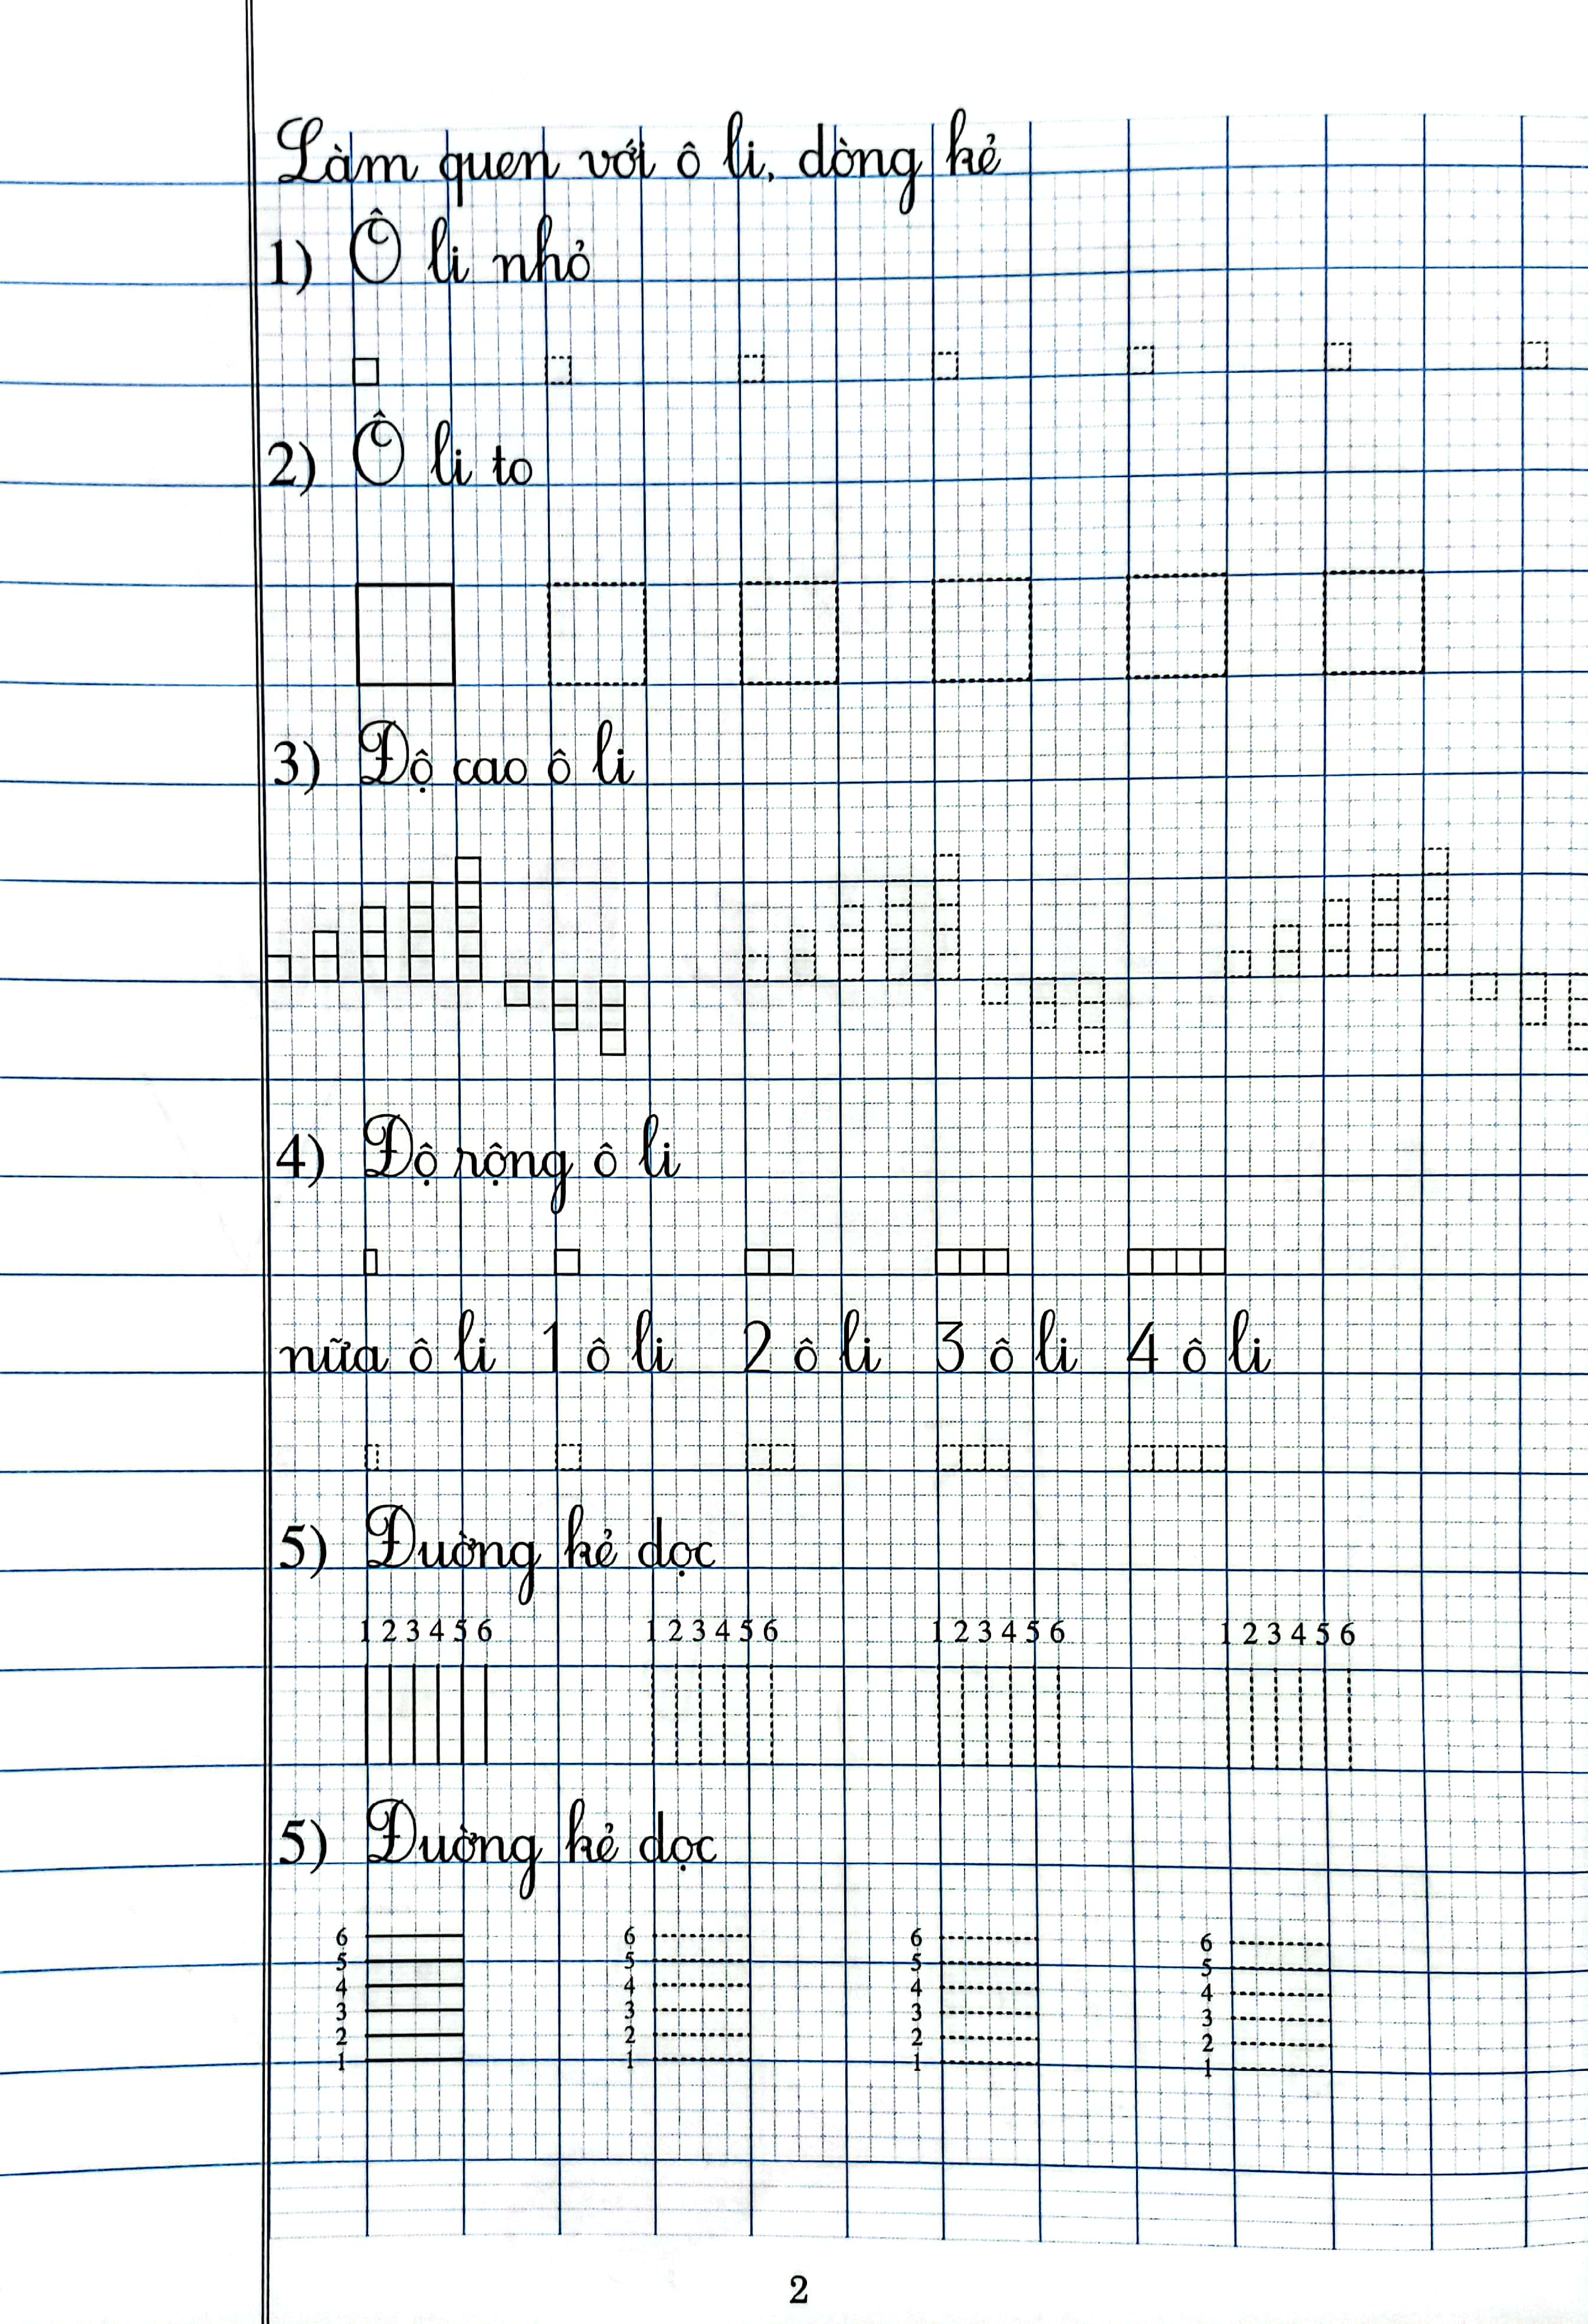 Làm quen với ô li, dòng kẻ
1) Ô li nhỏ
2) Ô li to
3) Độ cao ô li
4) Độ rộng ô li
nữa ô li 1 ô li 2 ô li 3 ô li 4 ô li
5) Đường kẻ dọc
1 2 3 4 5 6 1 2 3 4 5 6 1 2 3 4 5 6 1 2 3 4 5 6
5) Đường kẻ dọc
6 6 6 6
5 5 5 5
4 4 4 4
3 3 3 3
2 2 2 2
1 1 1 1
2